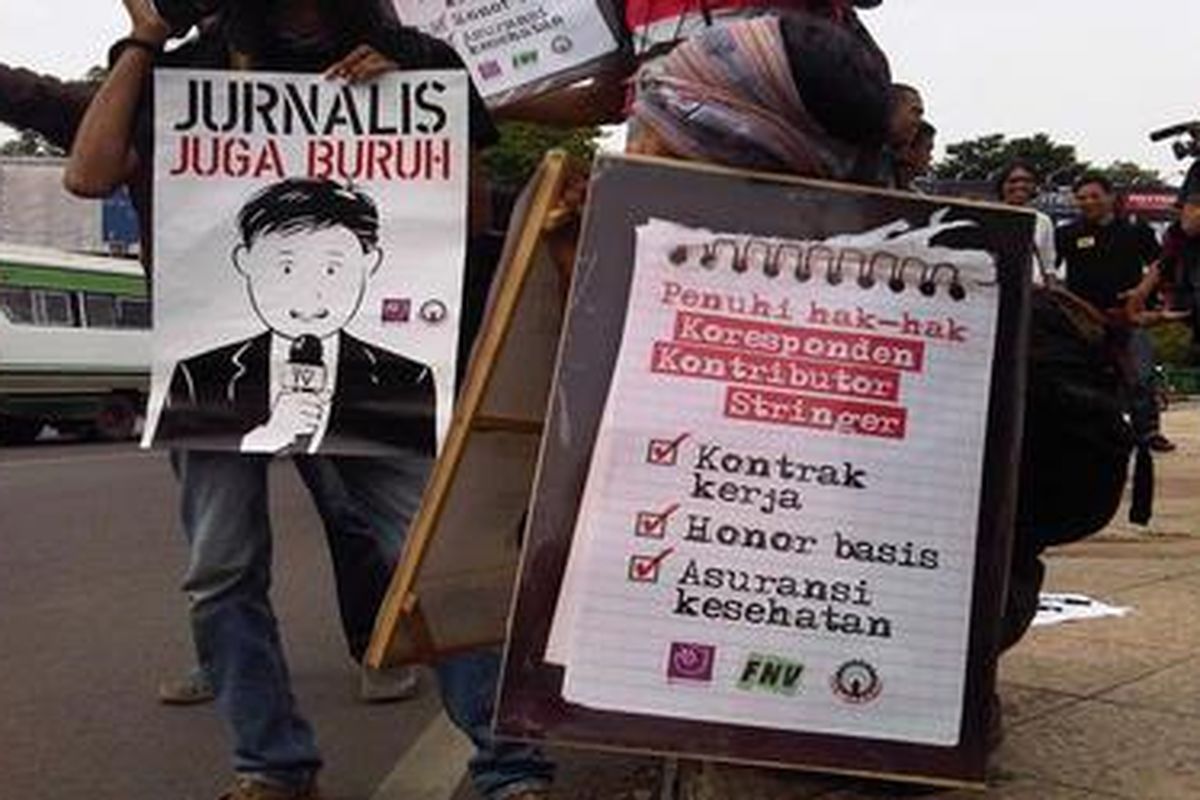 Asuransi
kesehatan
FNV
JURNALIS
JUGA BURUH
TV
Penuhi hak-hak
Koresponden
Kontributor
Stringer
Kontrak
kerja
Honor basis
Asuransi
kesehatan
FNV